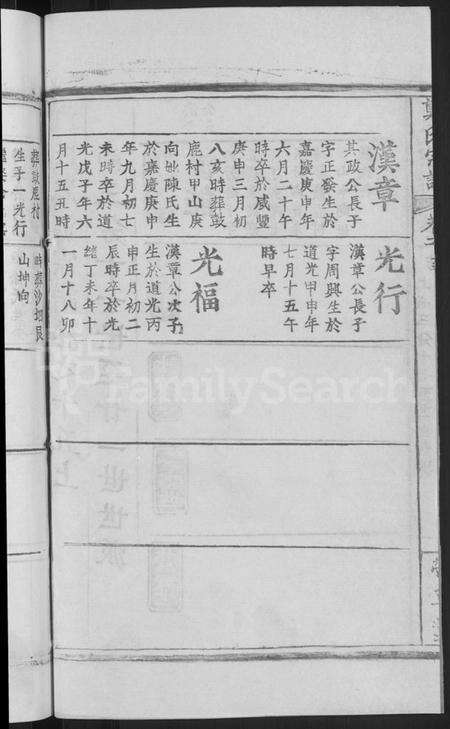 漢章
其政公長子
字正發生於
嘉慶庚申年
六月二十午
時卒於咸豐
庚申三月初
八亥時葬鼓
鹿村甲山庚
向妣陳氏生
於嘉慶庚申
年九月初七
未時卒於道
光戊子年六
月十五丑時
葬鼓鹿村
生子一光行
光行
漢章公長子
字周興生於
道光甲申年
七月十五午
時早卒
光福
漢章公次子
生於道光丙
申正月初二
辰時卒於光
緒丁未年十
一月十八卯
時葬沙坝長
山坤向
FamilySearch